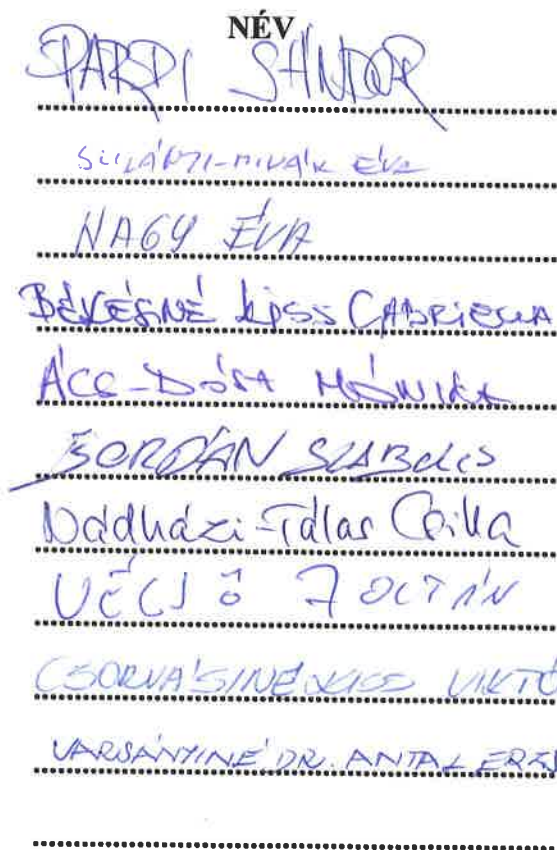 NÉV
SÁNDOR
ÉVA
NAGY ÉVA
BÉKÉSNÉ KISS GABRIELLA
ÁCS-DÓSA MÓNIKA
BORDÁN SZABOLCS
Nádházi-Tálas Csilla
VÉCSŐ ZOLTÁN
CSORVÁSINÉ KISS VIKTÓ
VARSÁNYINÉ DR. ANTAL ERZS